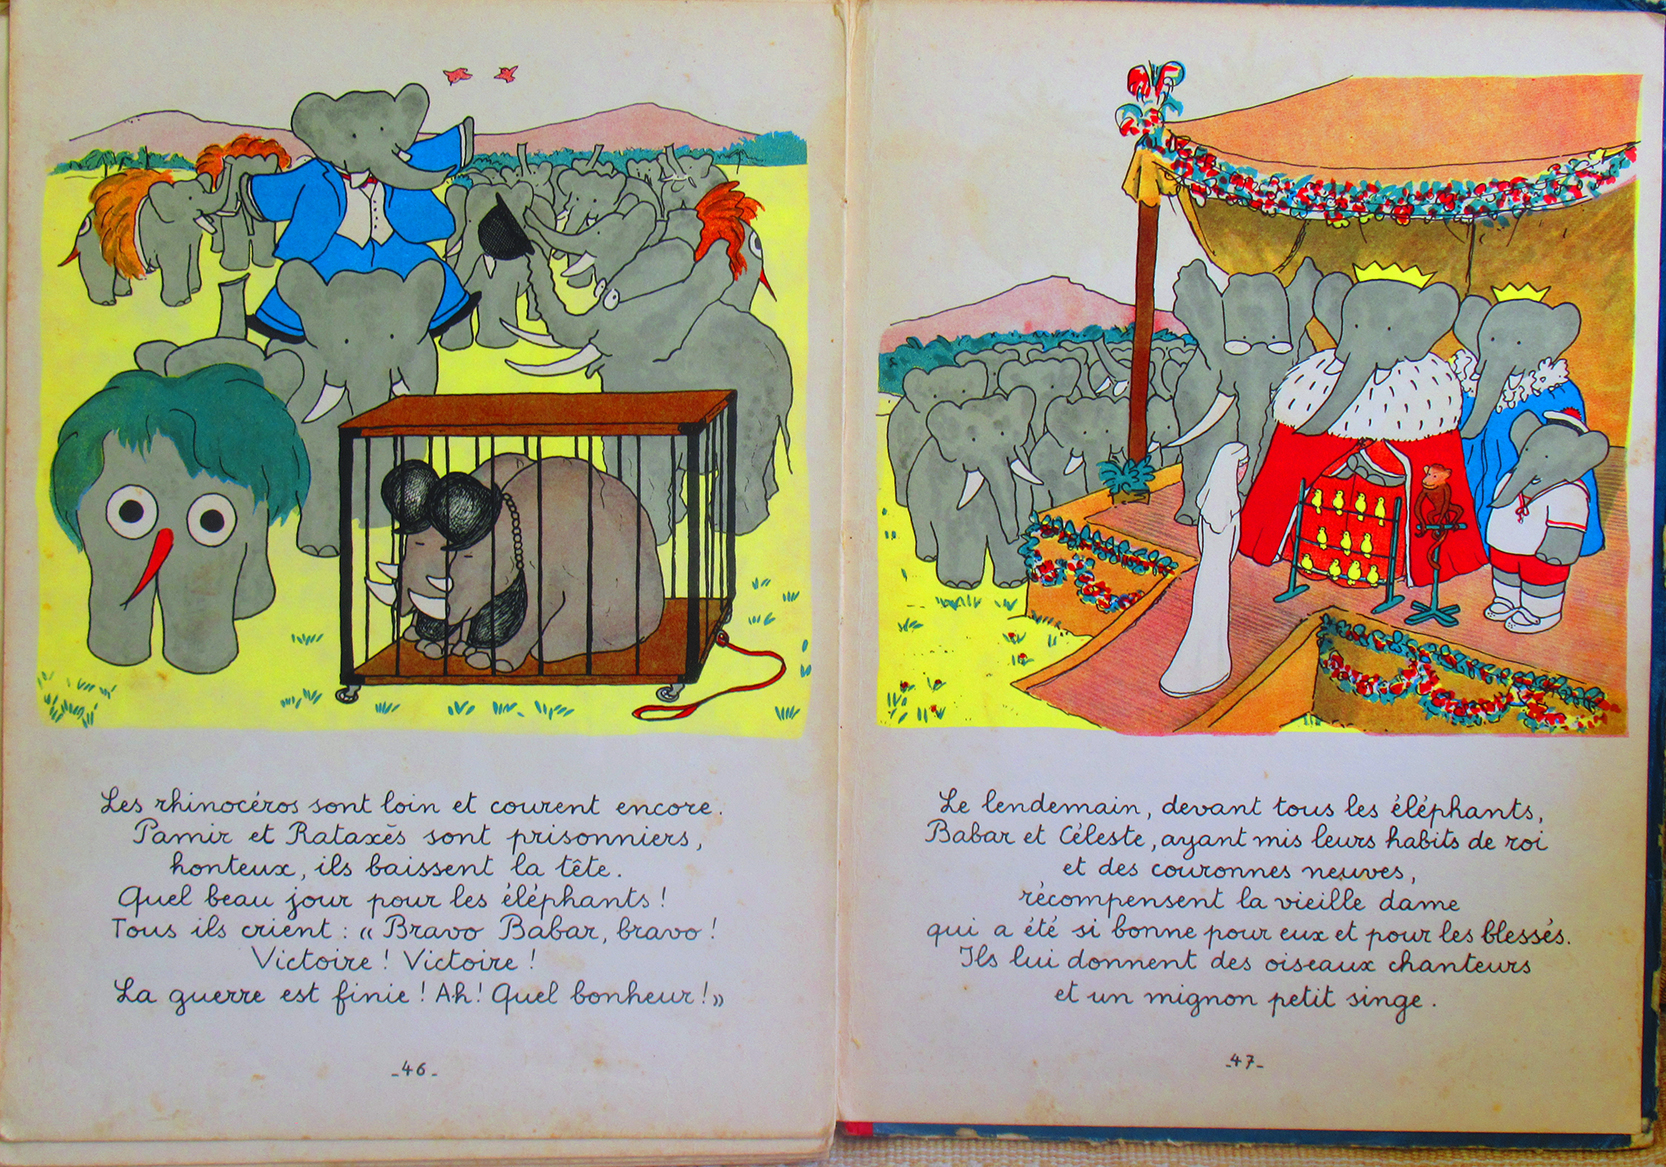 Les rhinocéros sont loin et courent encore.
Pamir et Rataxès sont prisonniers,
honteux, ils baissent la tête.
Quel beau jour pour les éléphants !
Tous ils crient : « Bravo Babar, bravo !
Victoire ! Victoire !
La guerre est finie ! Ah ! Quel bonheur ! »
_46_
Le lendemain, devant tous les éléphants,
Babar et Céleste, ayant mis leurs habits de roi
et des couronnes neuves,
récompensent la vieille dame
qui a été si bonne pour eux et pour les blessés.
Ils lui donnent des oiseaux chanteurs
et un mignon petit singe.
_47_